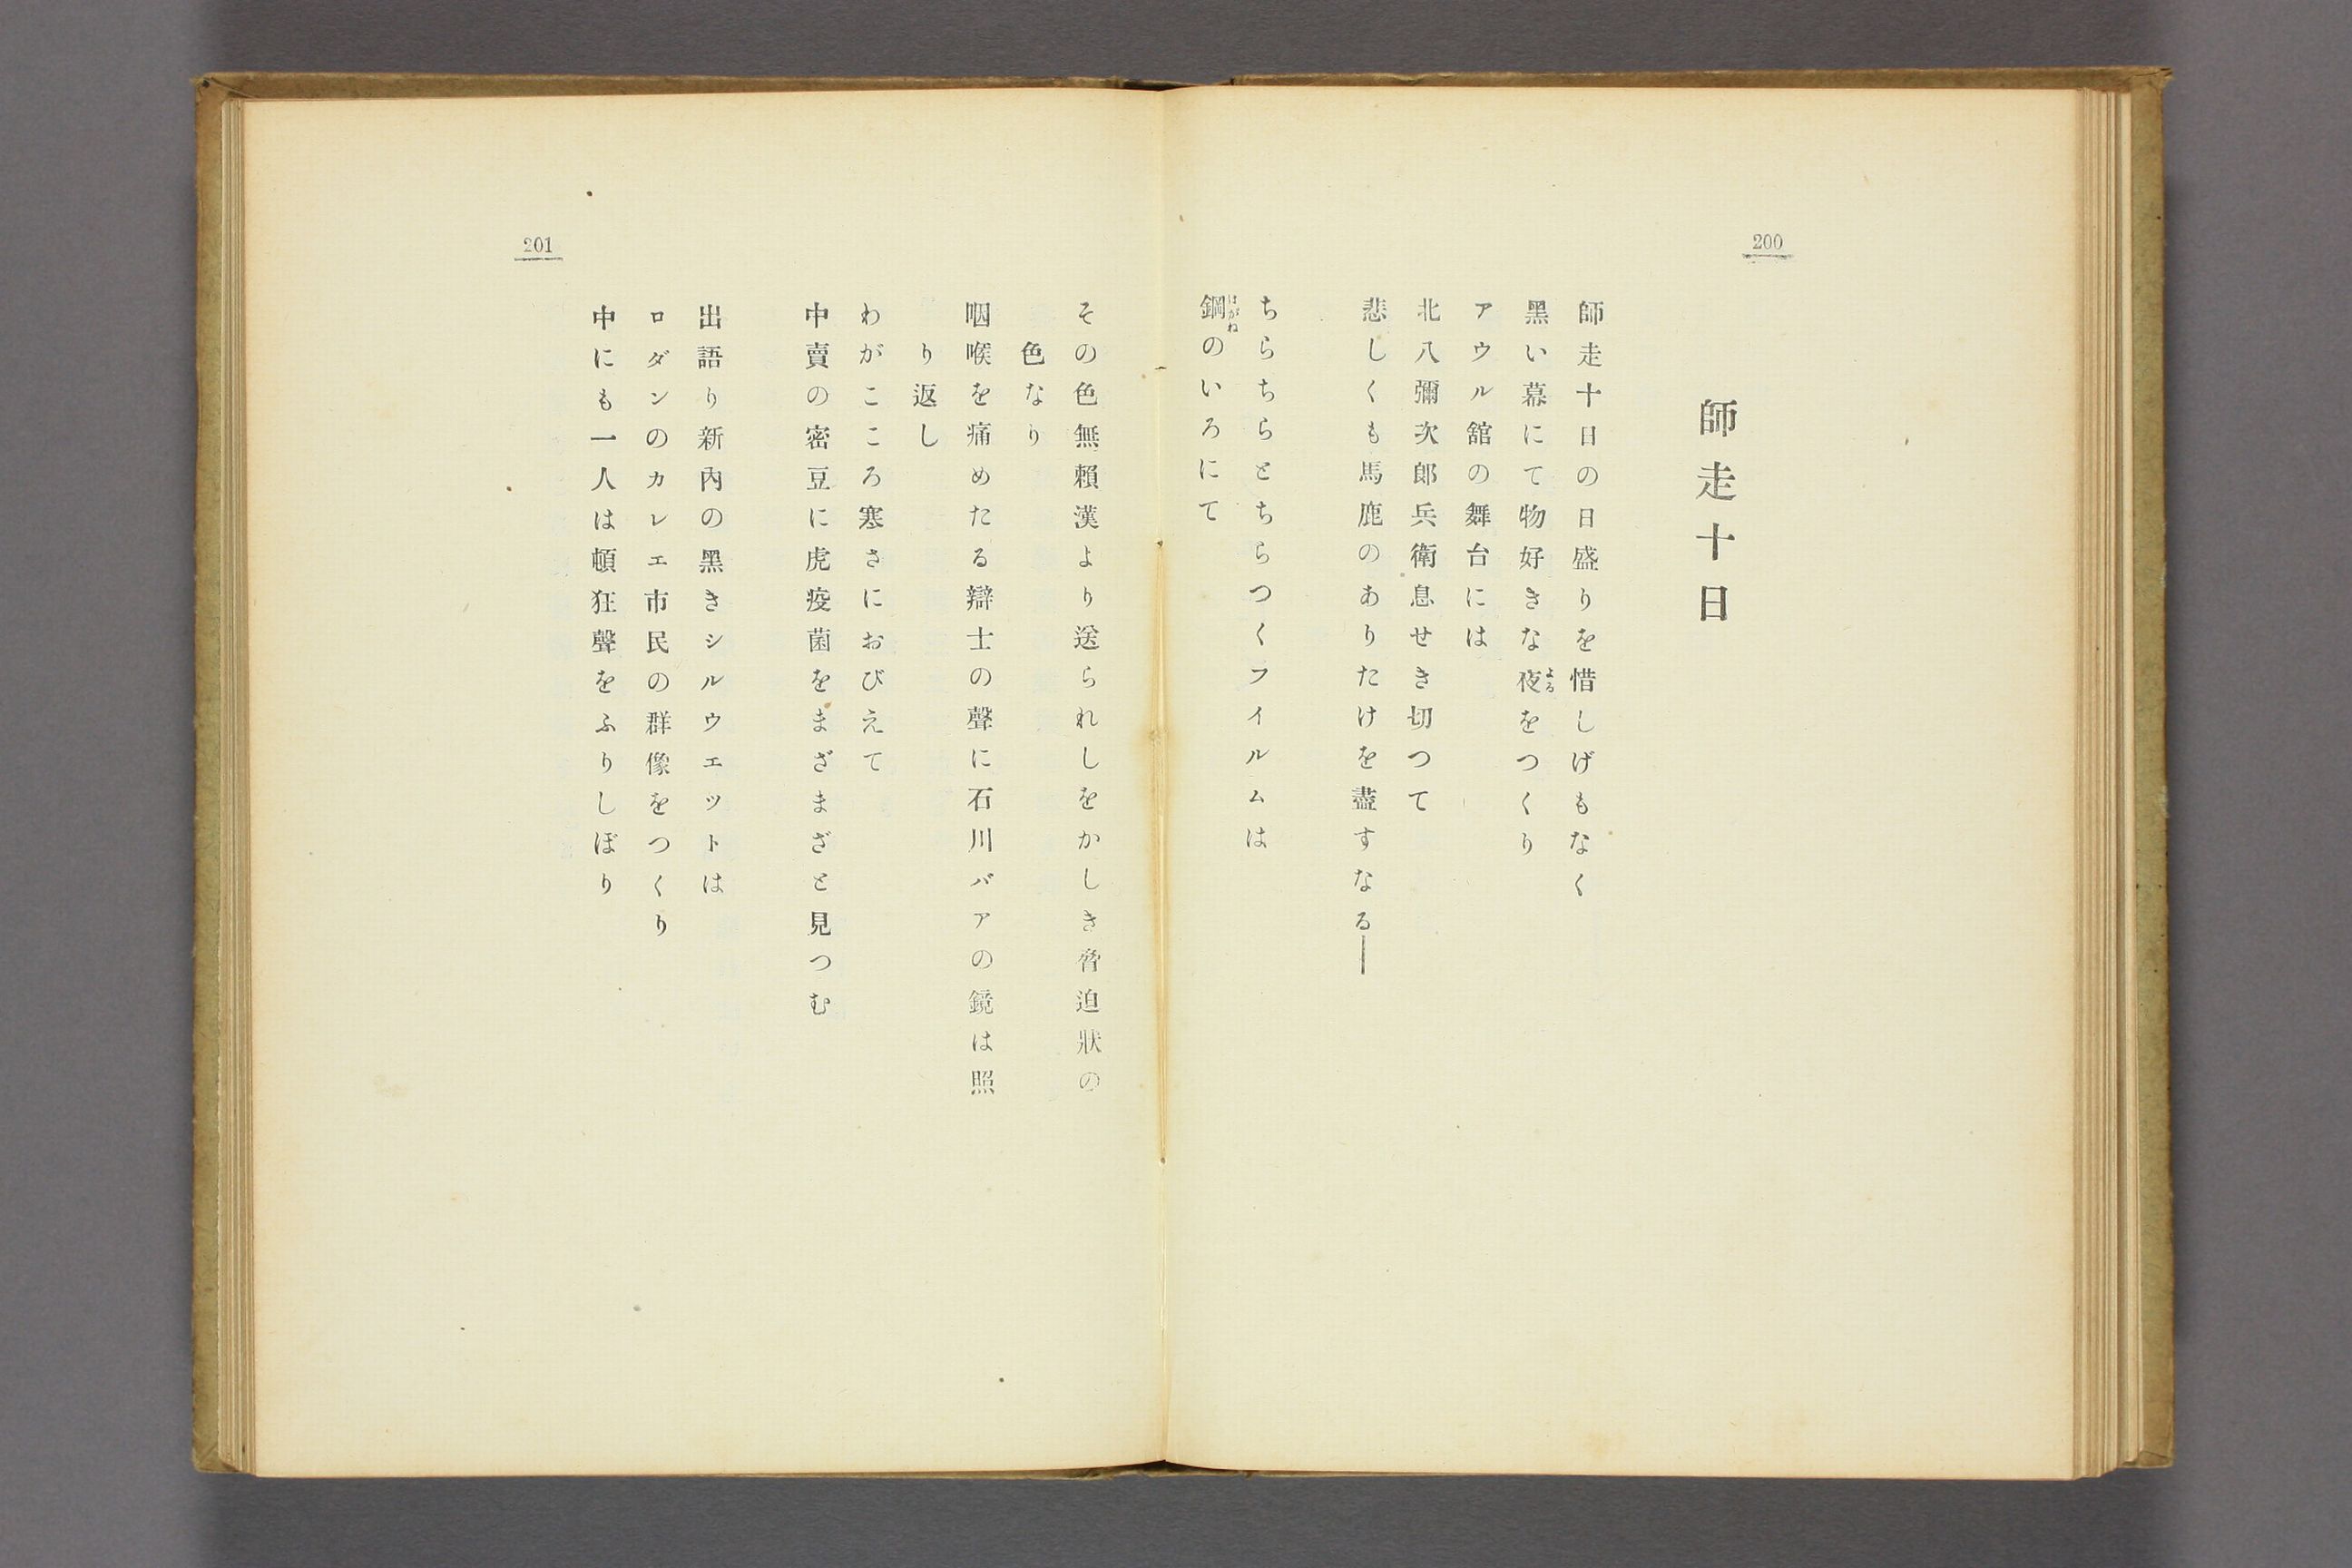 200
師走十日
師走十日の日盛りを惜しげもなく
黑い幕にて物好きな夜をつくり
よる
アウル舘の舞台には
北八彌次郎兵衛息せき切つて
悲しくも馬鹿のありたけを盡すなる――
ちらちらとちらつくフイルムは
鋼のいろにて
はがね
201
その色無賴漢より送られしをかしき脅迫狀の
色なり
咽喉を痛めたる辯士の聲に石川バアの鏡は照
り返し
わがこころ寒さにおびえて
中賣の密豆に虎疫菌をまざまざと見つむ
出語り新內の黑きシルウエットは
ロダンのカレエ市民の群像をつくり
中にも一人は頓狂聲をふりしぼり